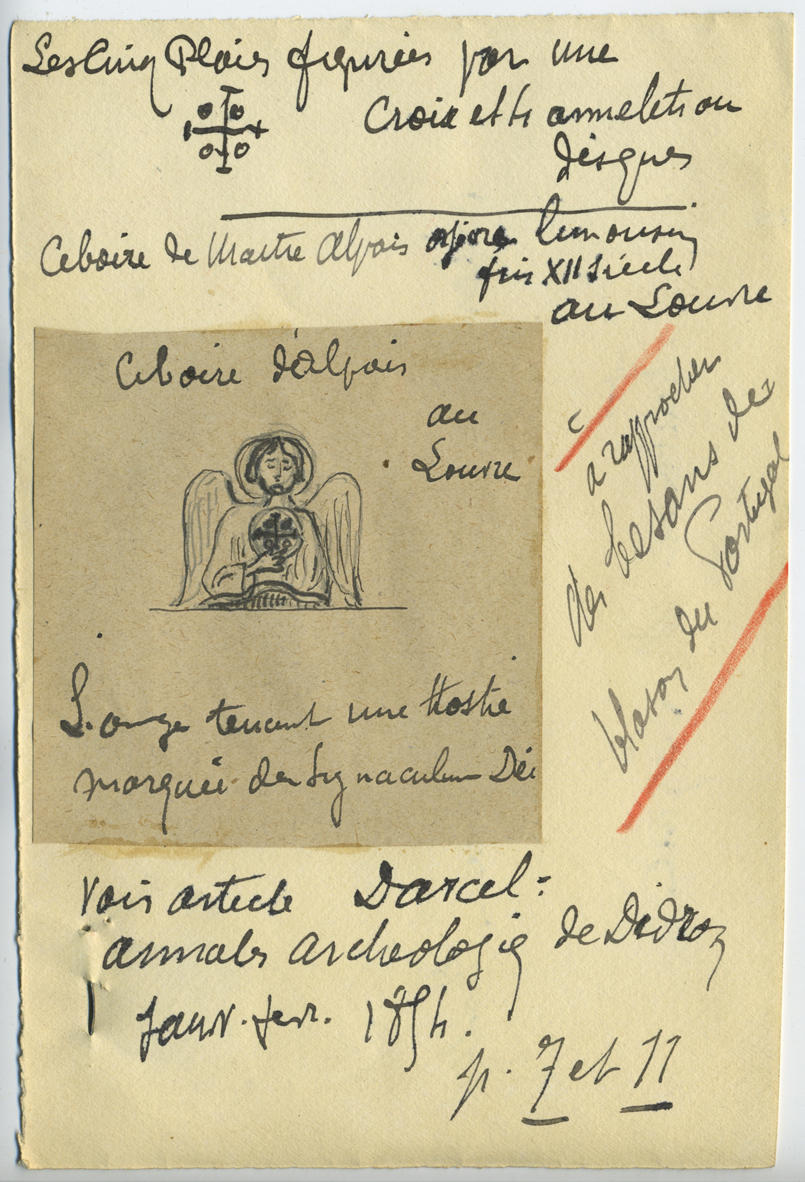 Les Cinq Plaies figurées par une
Croix et 4 annelets ou
disques
Ciboire de Maitre Alpais limousin
fin XII siècle
au Louvre
Ciboire d'Alpais
au
Louvre
L'ange tenant une Hostie
marquée du Signaculum Déi
à rapprocher
des besans de
blason du Portugal
Voir article Darcel:
annales archeologie de Didron
Janv. fevr. 1854.
p. 7 et 11